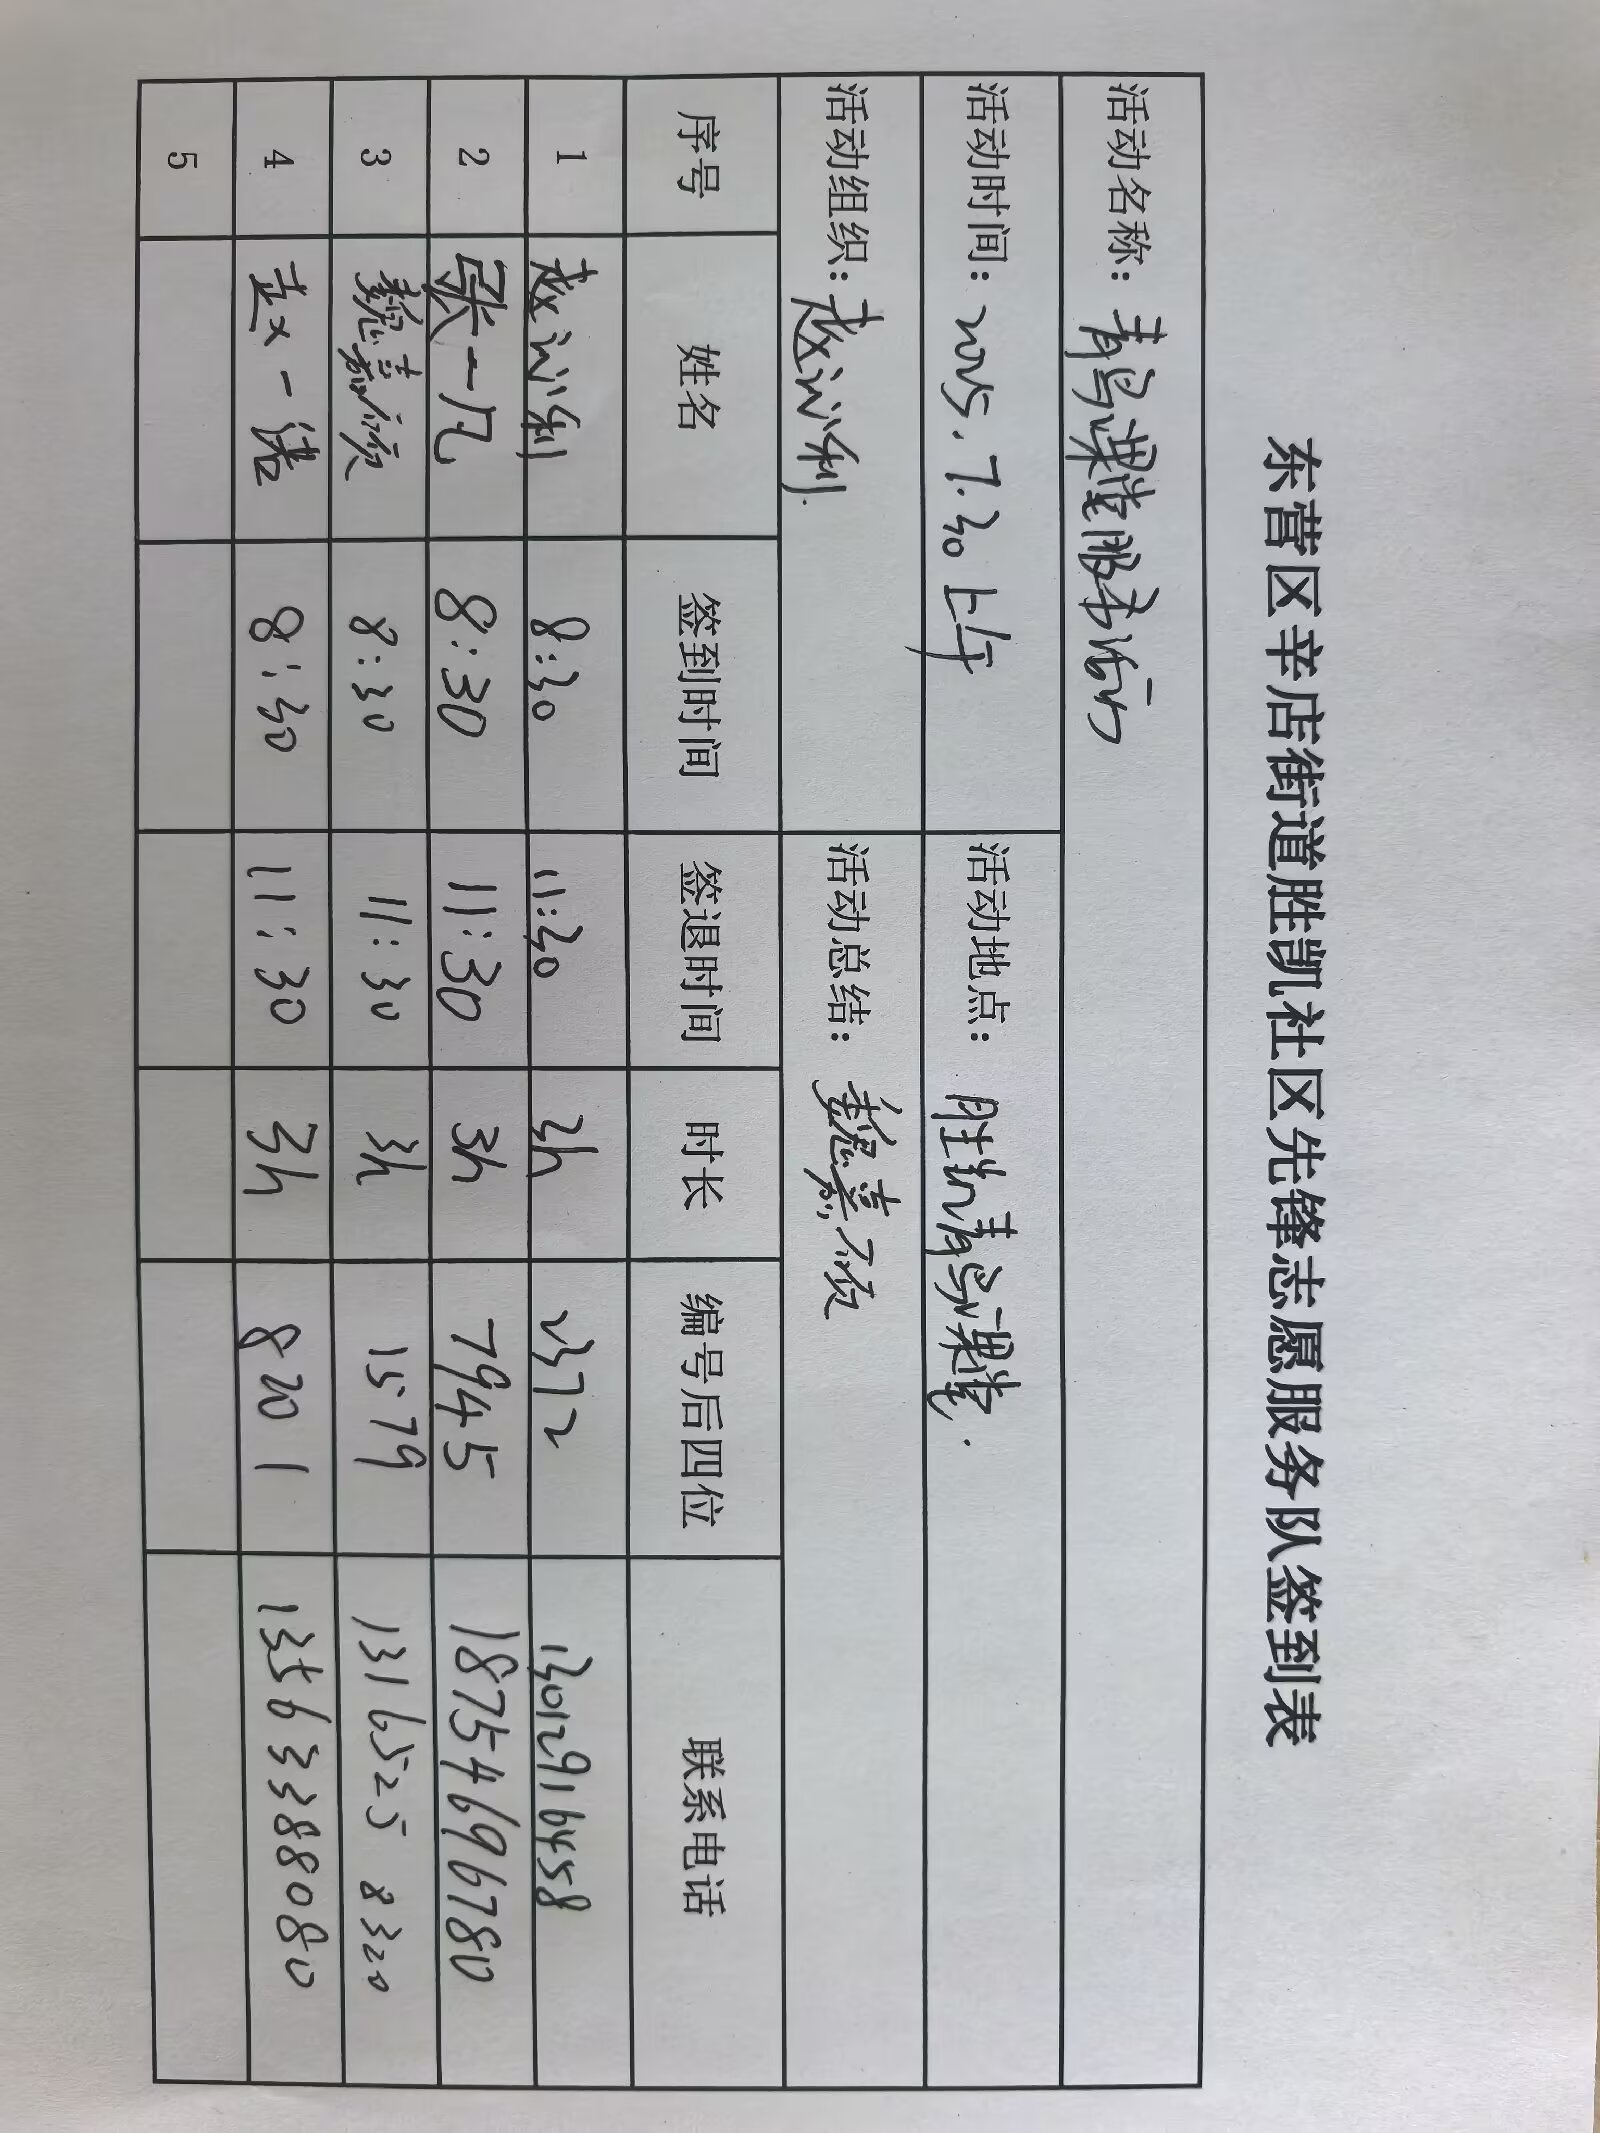 东营区辛店街道胜凯社区先锋志愿服务队签到表
活动名称：青鸟课堂服务活动
活动时间：2025.7.30上午 活动地点：胜凯青鸟课堂.
活动组织：赵 利 活动总结：魏
序号 姓名 签到时间 签退时间 时长 编号后四位 联系电话
1 赵 利 8:30 11:30 3h 2372 13012916458
2 张一凡 8:30 11:30 3h 7945 18754696780
3 魏 8:30 11:30 3h 1579 13165258320
4 赵一诺 8:30 11:30 3h 8201 13563388080
5